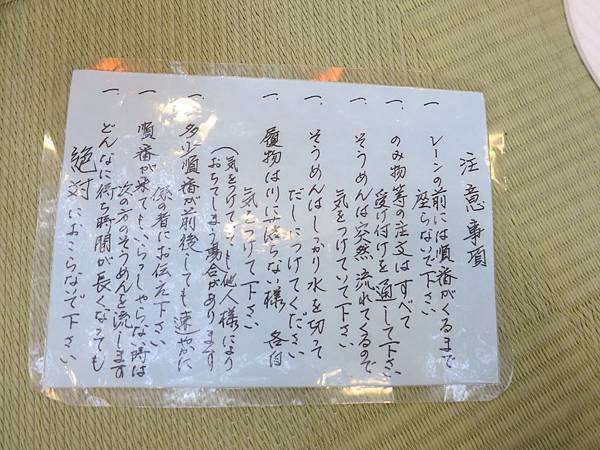 注意事項
一、レーンの前には順番がくるまで
座らないで下さい
一、のみ物等の注文はすべて
受け付けを通して下さい
一、そうめんは突然流れてくるので
気をつけていて下さい
一、そうめんはしっかり水を切って
だしにつけてください
一、履物は川にはらない様 各自
気をつけて下さい
(気をつけていても他人様により
おちてしまう場合があります
一、多少順番が前後しても速やかに
係の者にお伝え下さい
一、順番が来てもいらっしゃらない時は
次の方のそうめんを流します
一、どんなに待ち時間が長くなっても
絶対におこらないで下さい